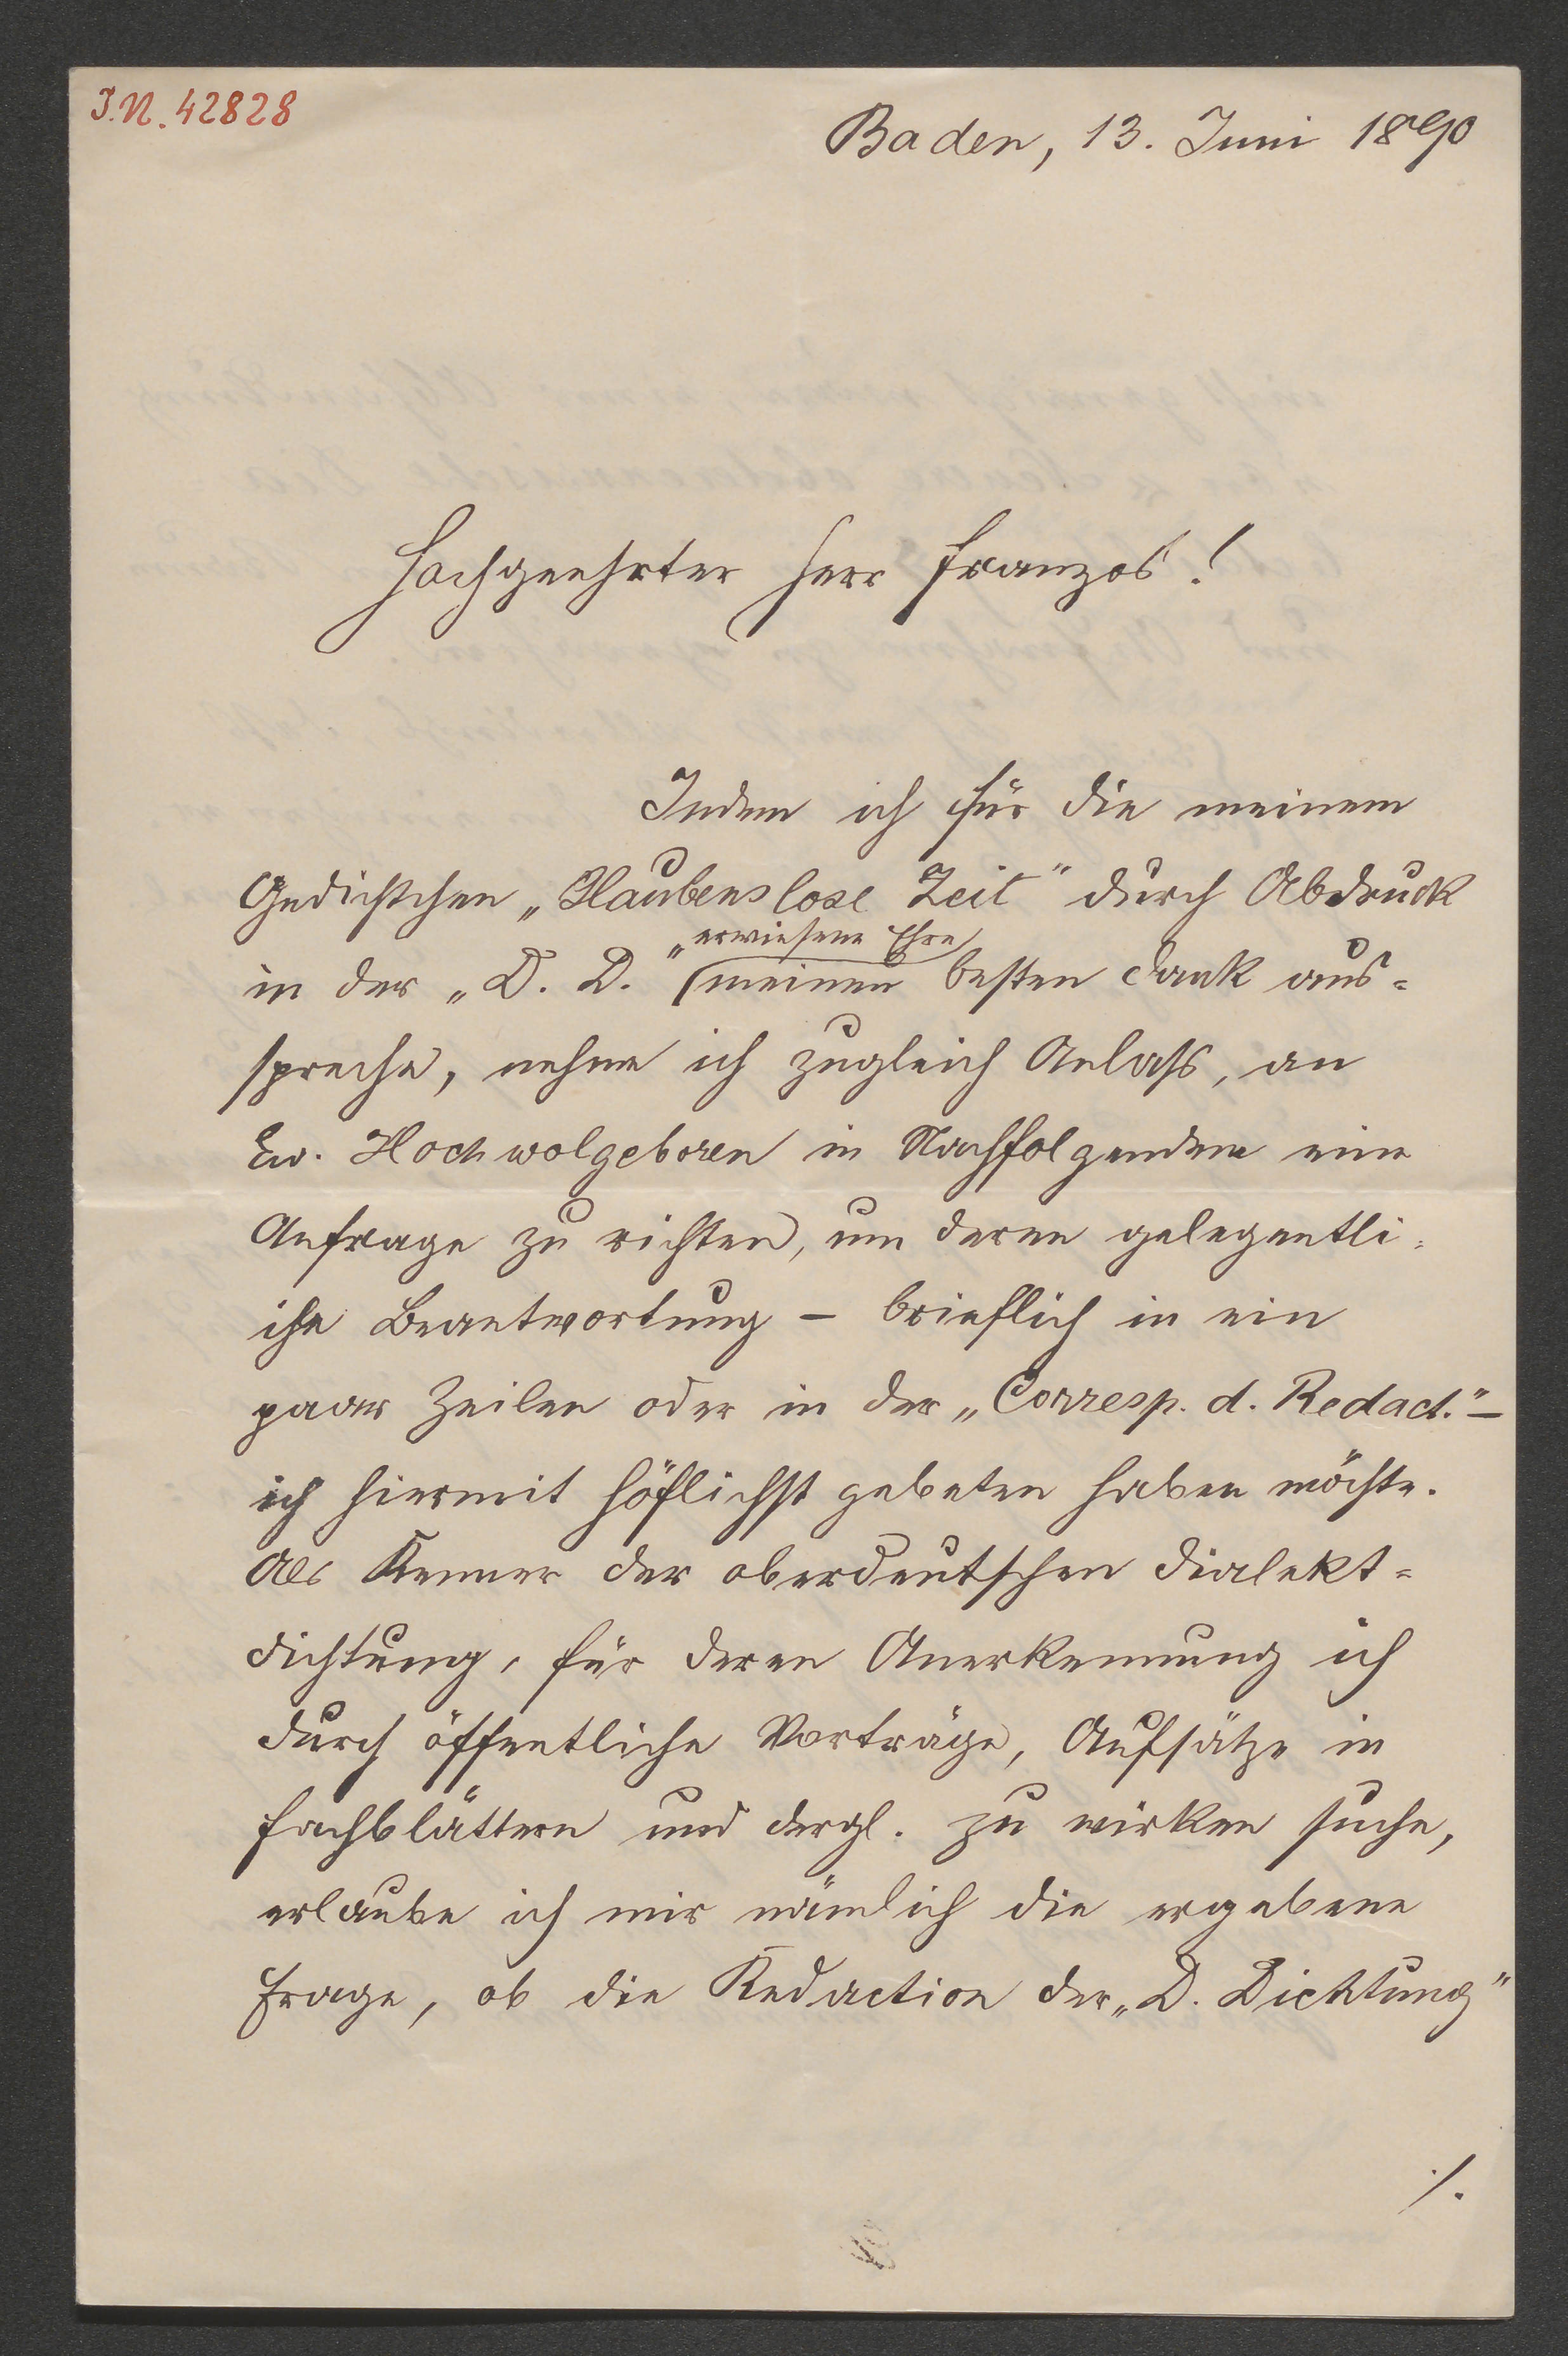 I.N. 42828
Baden, 13. Juni 1890
Hochgeehrter Herr Franzos!
Indem ich für die meinem
Gedichtchen „Glaubenslose Zeit" durch Abdruck
erwiesene Ehre
in der „D. D." meinen besten Dank aus=
spreche, nehme ich zugleich Anlaß, an
Ew. Hochwolgeboren in Nachfolgendem eine
Anfrage zu richten, um deren gelegentli=
che Beantwortung – brieflich in ein
paar Zeilen oder in der „Corresp. d. Redact." –
ich hiermit höflichst gebeten haben möchte.
Als Kenner der oberdeutschen Dialekt=
dichtung, für deren Anerkennung ich
durch öffentliche Vorträge, Aufsätze in
Fachblättern und dergl. zu wirken suche,
erlaube ich mir nämlich die ergebene
Frage, ob die Redaction der „D. Dichtung"
./.